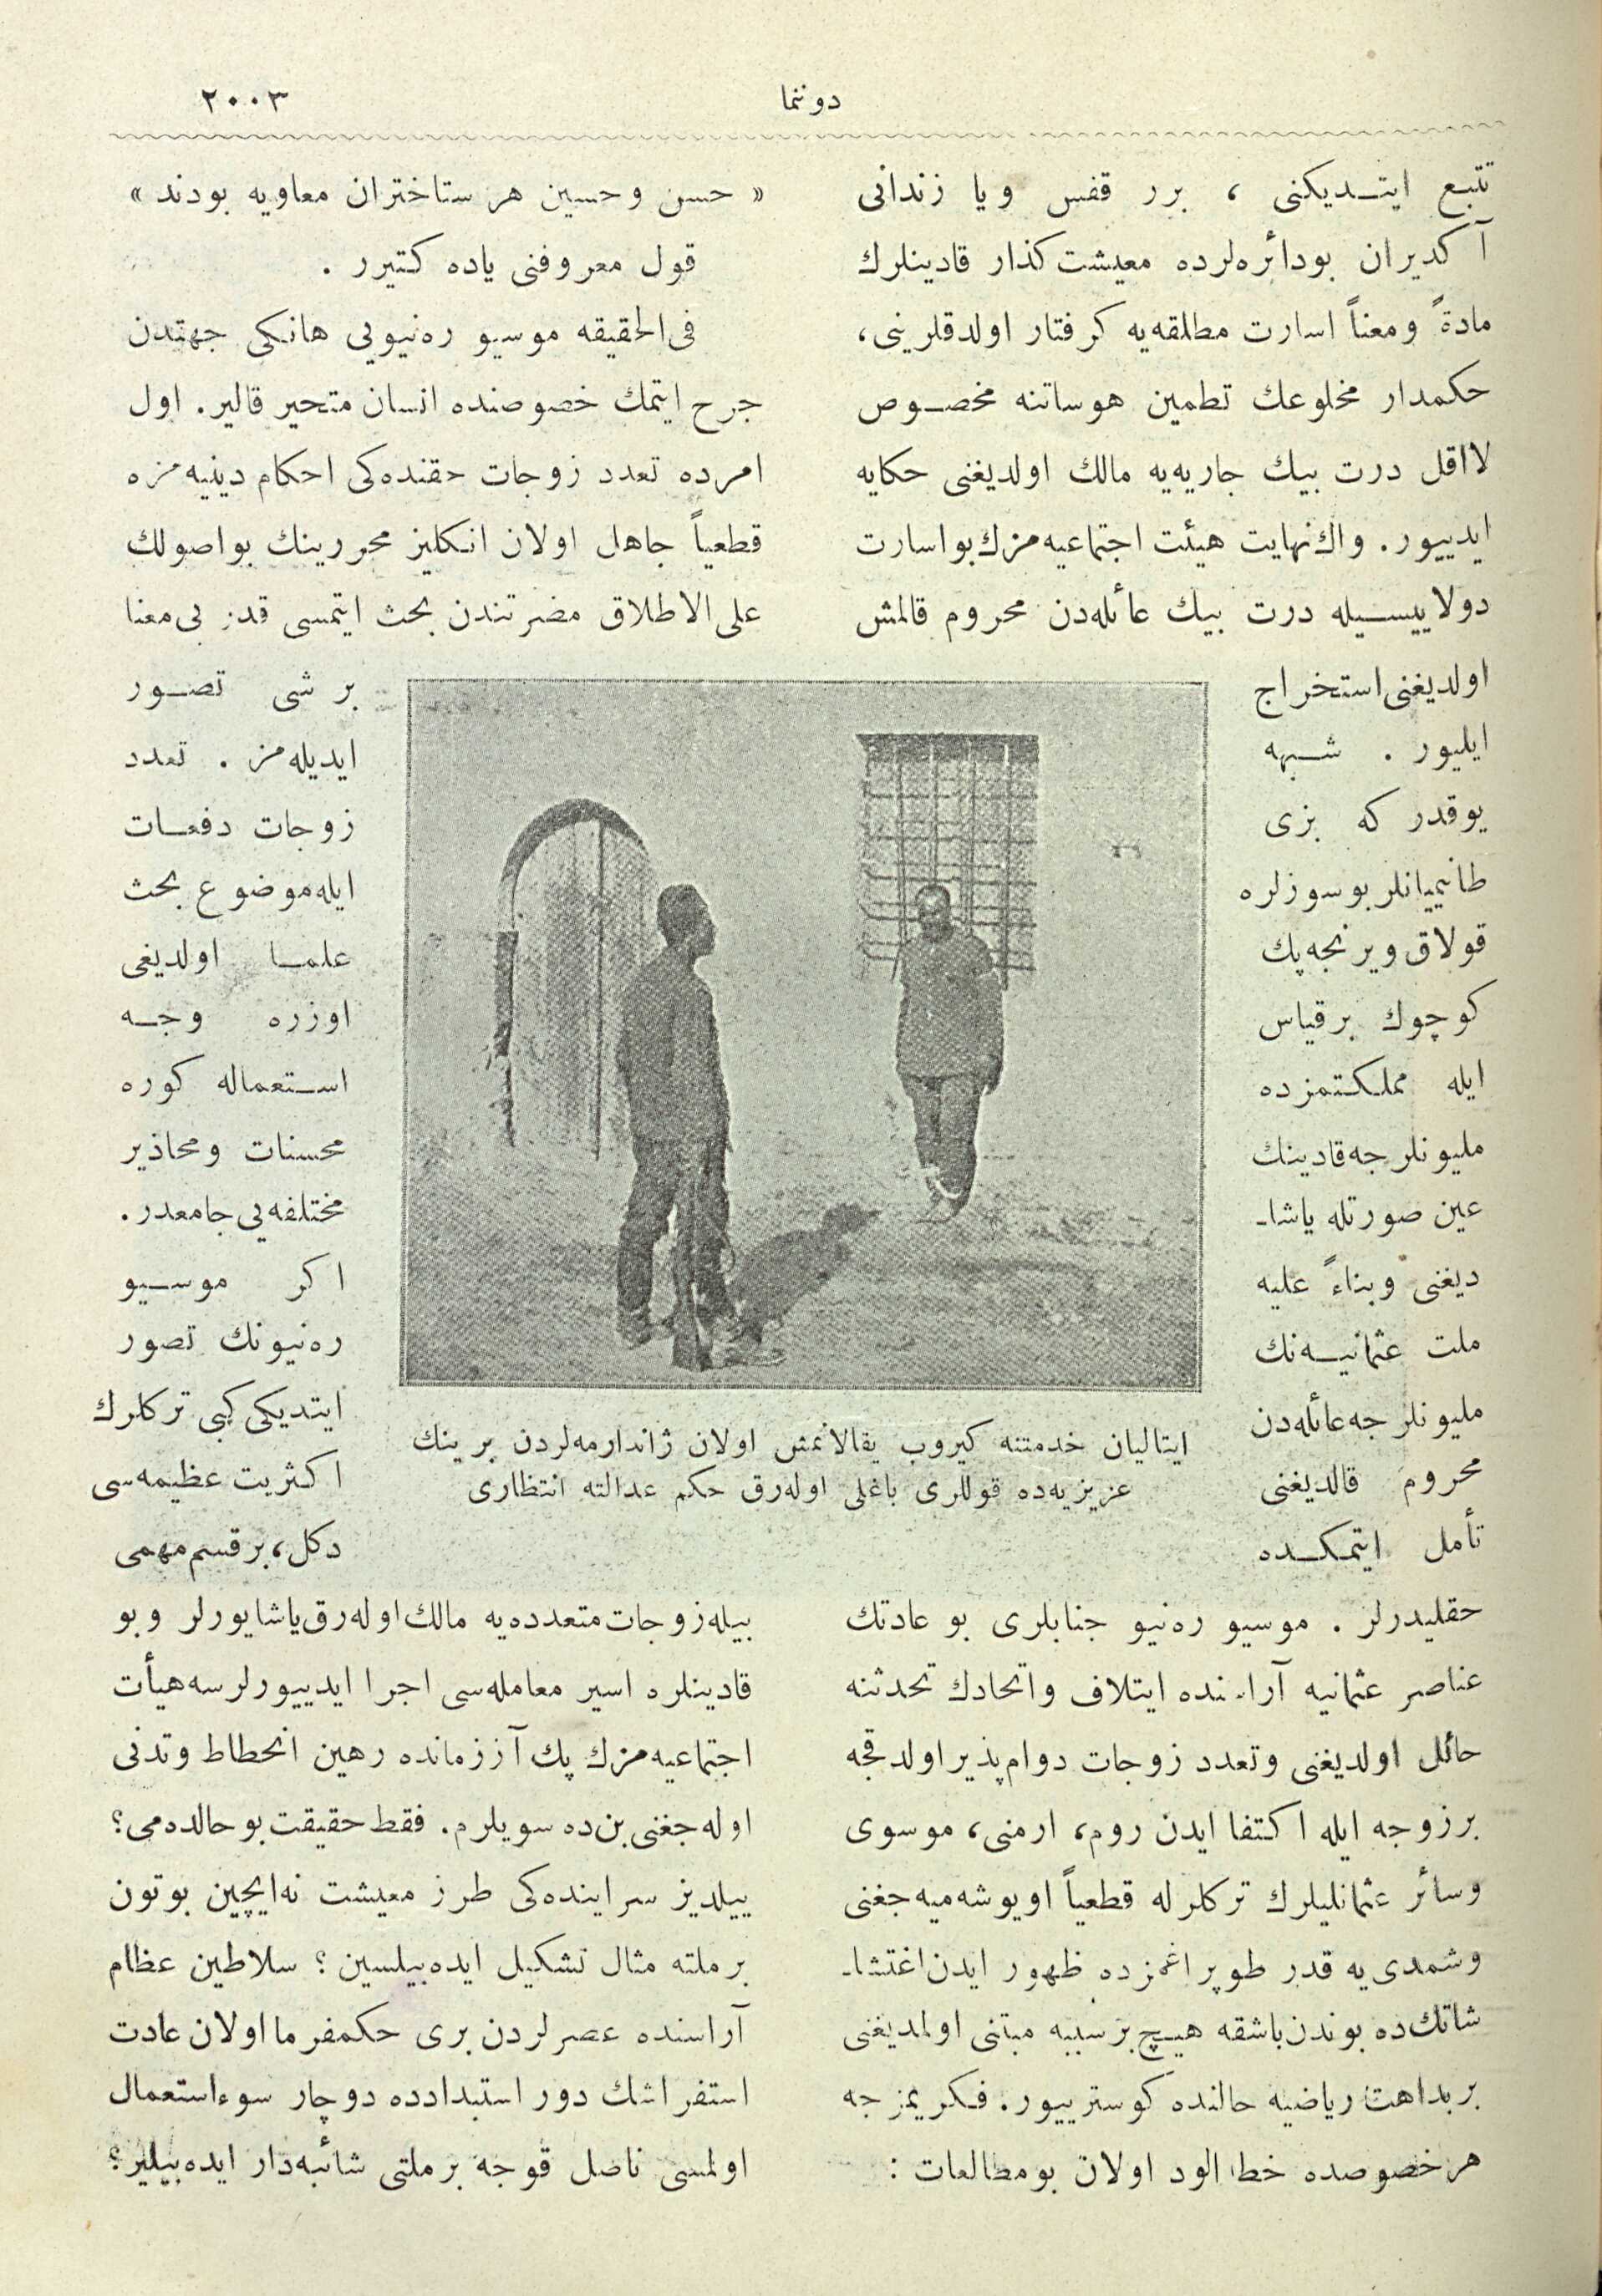 دوننما
٢٠٠٣
تتبع ایتدیكنی ، برر قفس ویا زندانی
آ كدیران بودائره‌لرده معیشت‌كذار قادینلرك
مادةً ومعناً اسارت مطلقه‌یه كرفتار اولدقلرینی،
حكمدار مخلوعك تطمین هوساتنه مخصوص
لااقل درت بیك جاریه‌یه مالك اولدیغنی حكایه
ایدییور. واك‌نهایت هیئت اجتماعیه‌مزك‌بواسارت
دولاییسیله درت بیك عائله‌دن محروم قالمش
اولدیغنی‌استخراج
ایلیور . شبهه
یوقدر كه بزی
طانیمیانلر بوسوزلره
قولاق ویرنجه‌پك
كوچوك برقیاس
ایله مملكتمزده
ملیونلرجه‌قادینك
عین صورتله یاشا-
دیغنی وبناءً علیه
ملت عثمانیه‌نك
ملیونلرجه‌عائله‌دن
محروم قالدیغنی
تأمل ایتمكده
حقلیدرلر . موسیو ره‌نیو جنابلری بو عادتك
عناصر عثمانیه آراسنده ایتلاف واتحادك تحدثنه
حائل اولدیغنی وتعدد زوجات دوام‌پذیر اولدقجه
برزوجه ایله ا كتفا ایدن روم، ارمنی، موسوی
وسائر عثمانلیلرك تركلرله قطعیاً اویوشه‌میه‌جغنی
وشمدی‌یه قدر طوپراغمزده ظهور ایدن‌اغتشا-
شاتك‌ده بوندن‌باشقه هیچ‌برسببه مبتنی اولمدیغنی
بربداهت ریاضیه حالنده كوسترییور. فكریمزجه
هرخصوصده خطا آلود اولان بومطالعات :
« حسن وحسین هر سه‌تاختران معاویه بودند »
قول معروفنی یاده كتیرر .
فی‌الحقیقه موسیو ره‌نیویی هانكی جهتدن
جرح ایتمك خصوصنده انسان متحیر قالیر. اول
امرده تعدد زوجات حقنده‌كی احكام دینیه‌مزه
قطعیاً جاهل اولان انكلیز محررینك بواصولك
علی‌الاطلاق مضرتندن بحث ایتمسی قدر بی‌معنا
بر شی تصور
ایدیله‌مز . تعدد
زوجات دفعات
ایله‌موضوع بحث
علما اولدیغی
اوزره وجه
استعماله كوره
محسنات ومحاذیر
مختلفه‌یی‌جامعدر.
ا كر موسیو
ره‌نیونك تصور
ایتدیكی كبی تركلرك
ا كثریت عظیمه‌سی
دكل، برقسم‌مهمی
بیله‌زوجات‌متعدده‌یه مالك‌اوله‌رق‌یاشایورلر وبو
قادینلره اسیر معامله‌سی اجرا ایدییورلرسه‌هیأت
اجتماعیه‌مزك پك آز زمانده رهین انحطاط وتدنی
اوله‌جغنی‌بن‌ده سویلرم. فقط‌حقیقت‌بوحالده‌می؟
ییلدیز سراینده‌كی طرز معیشت نه‌ایچین بوتون
برملته مثال تشكیل ایده‌بیلسین ؟ سلاطین عظام
آراسنده عصرلردن بری حكمفرما اولان عادت
استفراشك دور استبدادده دوچار سوءاستعمال
اولمسی ناصل قوجه برملتی شائبه‌دار ایده‌بیلیر؟
ایتالیان خدمتنه كیروب یقالانمش اولان ژاندارمه‌لردن برینك
عزیزیه‌ده قوللری باغلی اوله‌رق حكم عدالته انتظاری